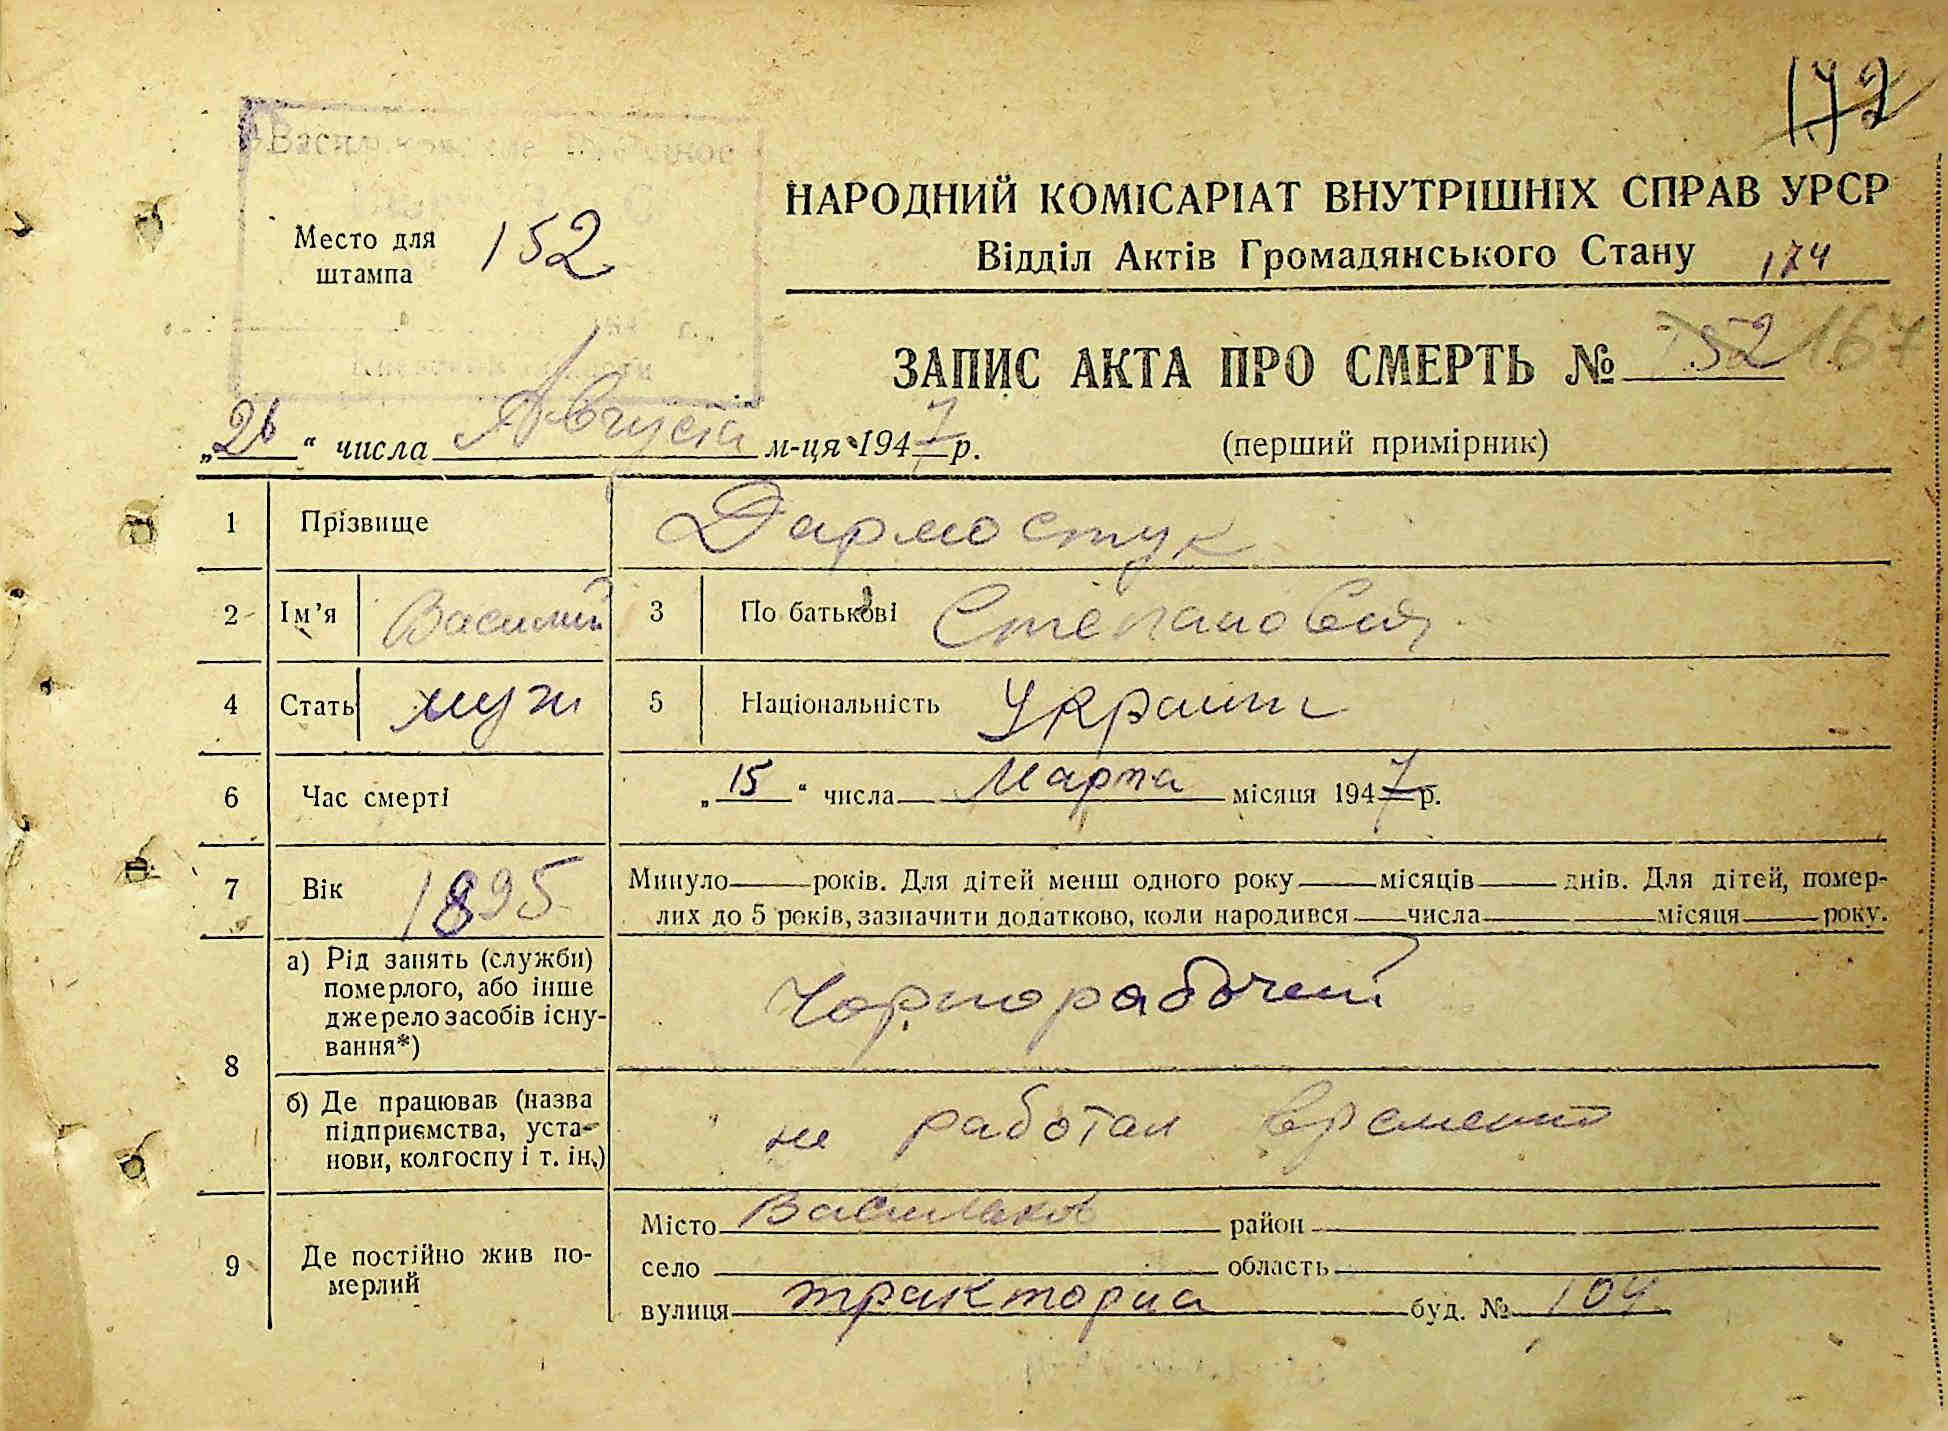 172
НАРОДНИЙ КОМІСАРІАТ ВНУТРІШНІХ СПРАВ УРСР
Відділ Актів Громадянського Стану 174
Место для штампа 152
ЗАПИС АКТА ПРО СМЕРТЬ № 152 167
„26“ числа Августа м-ця 1947 р. (перший примірник)
1 Прізвище Дармостук
2 Ім'я Василий 3 По батькові Степанович
4 Стать муж 5 Національність Украин
6 Час смерті „15“ числа Марта місяця 1947 р.
7 Вік 1895 Минуло років. Для дітей менш одного року місяців днів. Для дітей, помер-
лих до 5 років, зазначити додатково, коли народився числа місяця року.
8 а) Рід занять (служби)
померлого, або інше
джерело засобів існу-
вання*) Чорнорабочей
б) Де працював (назва
підприємства, уста-
нови, колгоспу і т. ін.) не работал временно
9 Де постійно жив по-
мерлий
Місто Васильков район
село область
вулиця тракторна буд. № 104